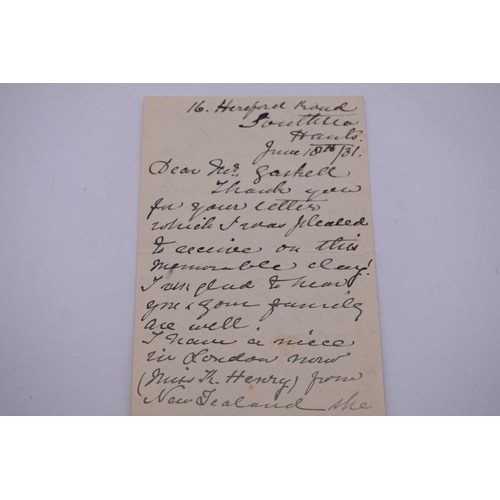 16. Hereford Road
Southsea
Hants.
June 18th/31.
Dear Mr. Gaskell
Thank you
for your letter
which I was pleased
to receive on this
memorable day!
I am glad to hear
you & your family
are well.
I have a niece
in London now
(Miss K. Henry) from
New Zealand she